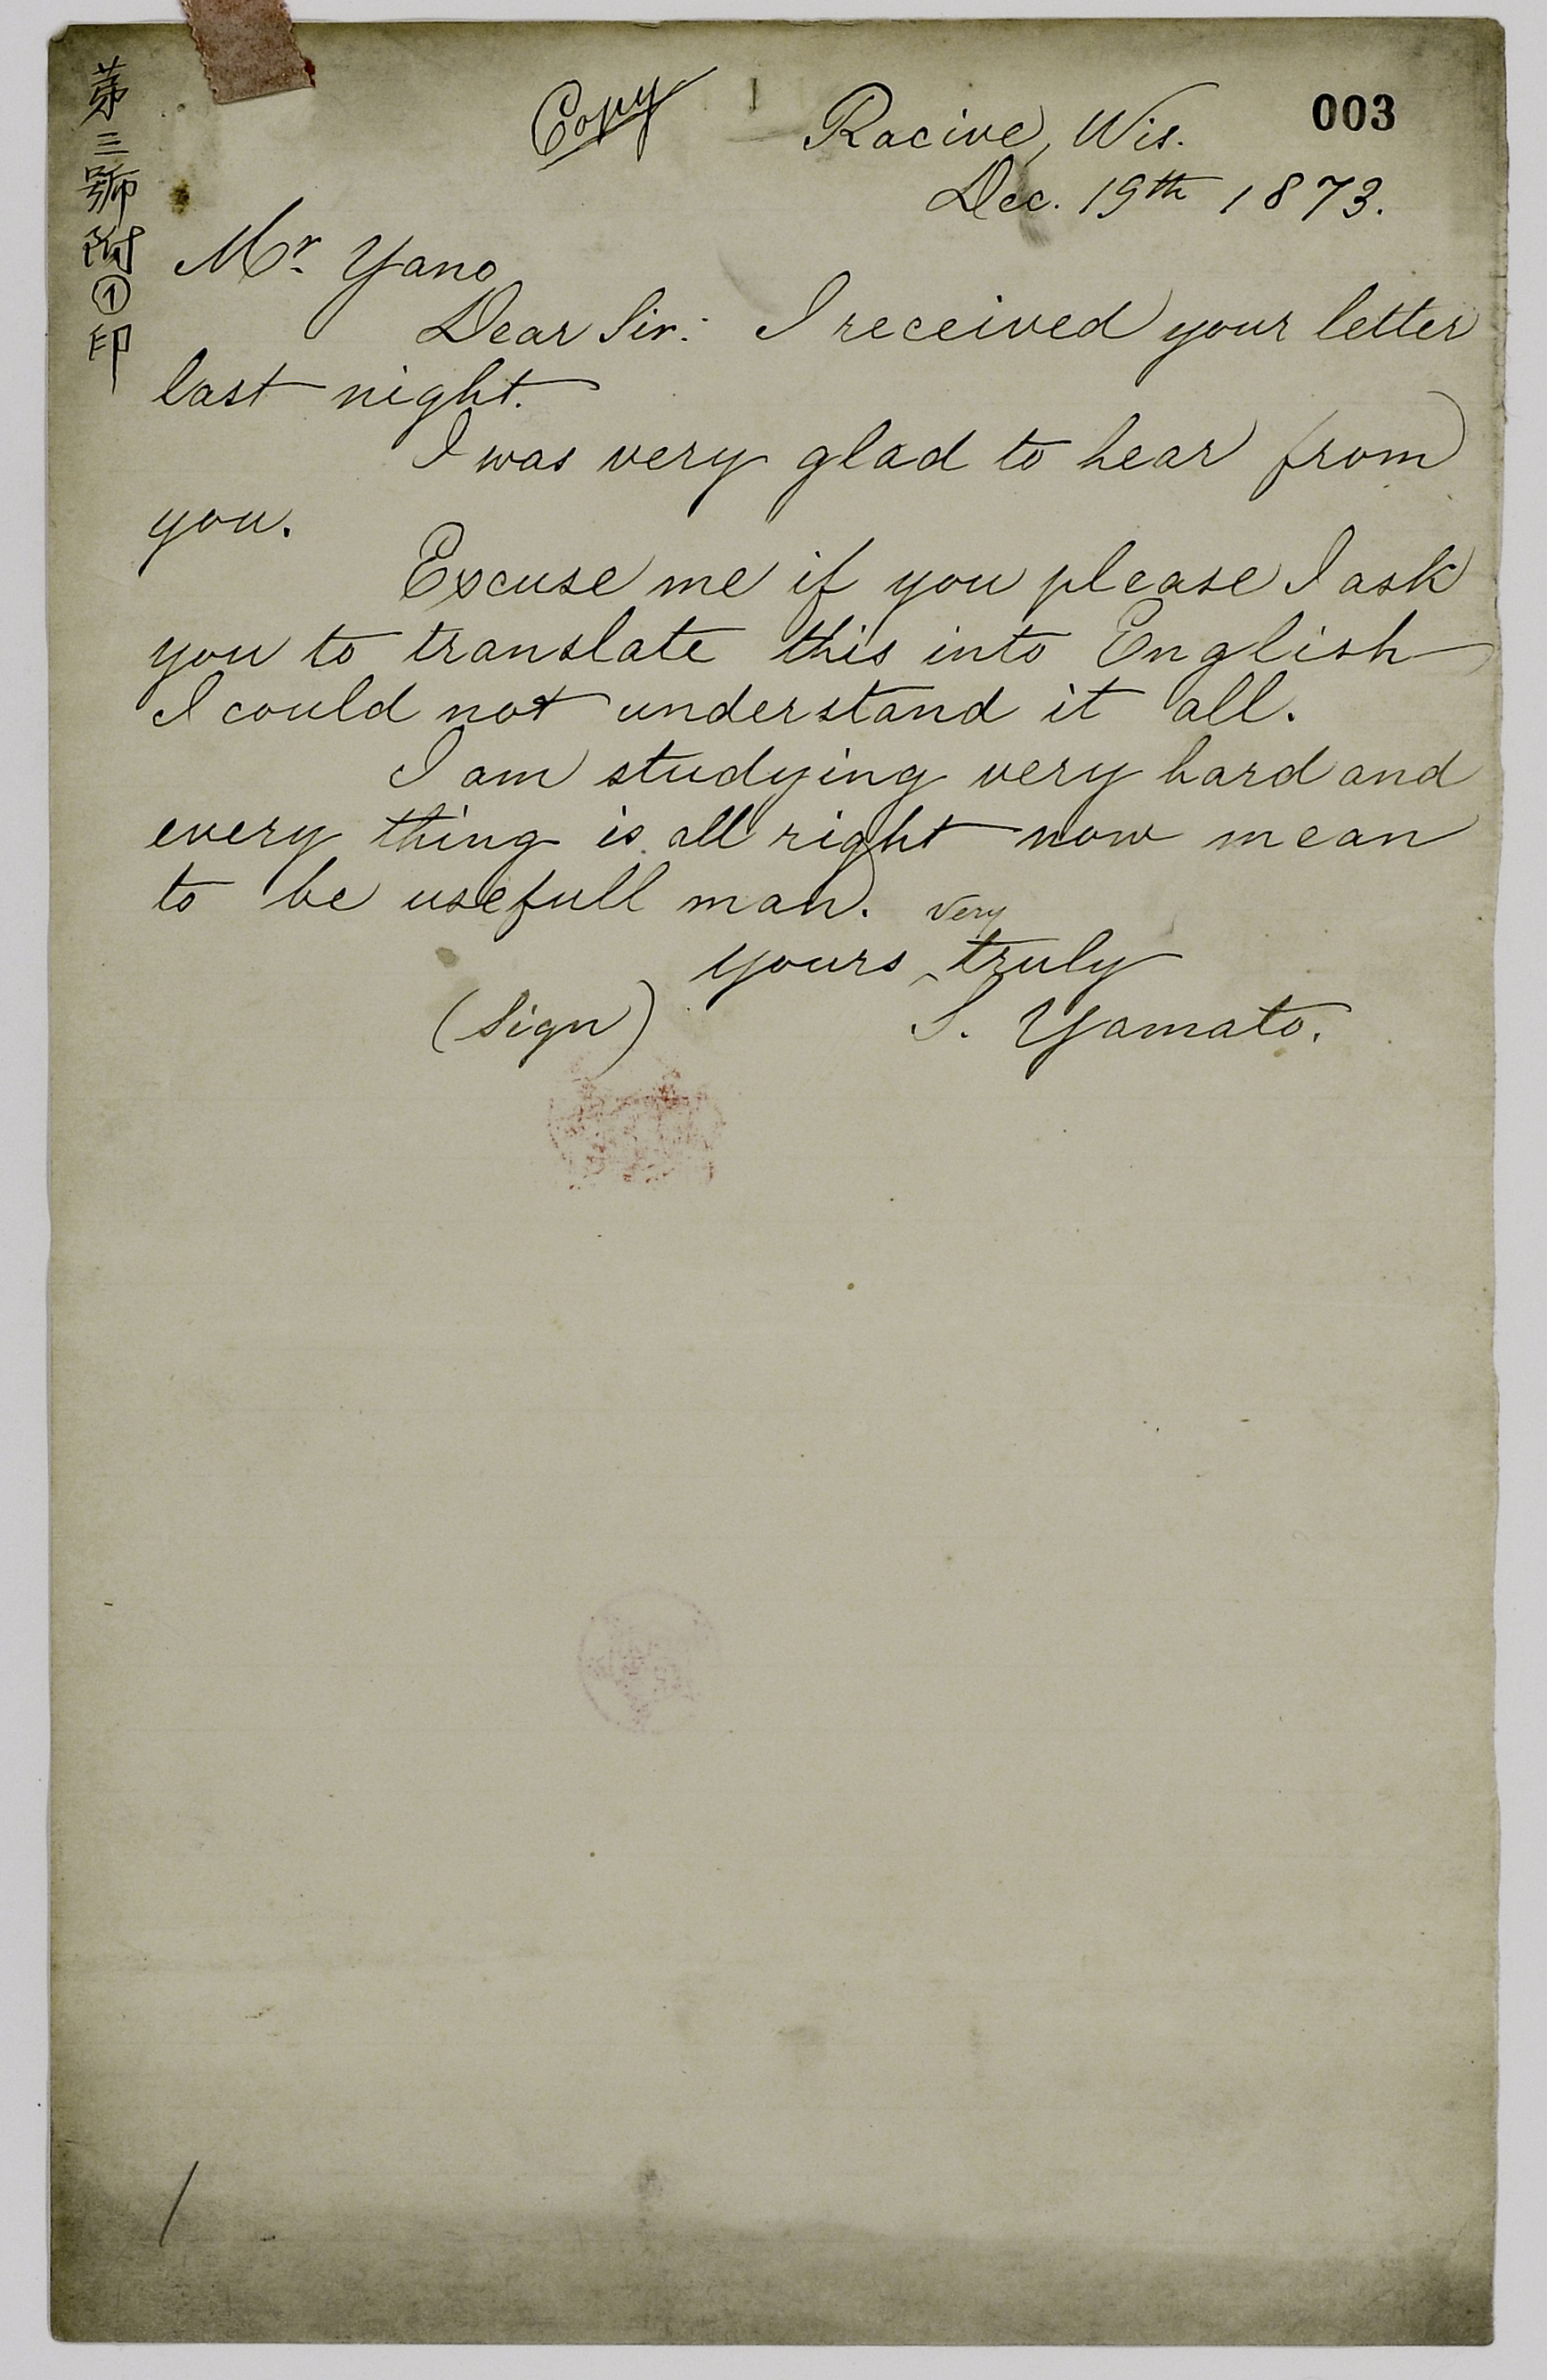 第三號附①印
Copy
003
Racine, Wis.
Dec. 19th 1873.
Mr. Yano
Dear Sir: I received your letter
last night.
I was very glad to hear from
you.
Excuse me if you please I ask
you to translate this into English
I could not understand it all.
I am studying very hard and
every thing is all right now mean
to be usefull man.
yours very truly
(Sign) S. Yamato.